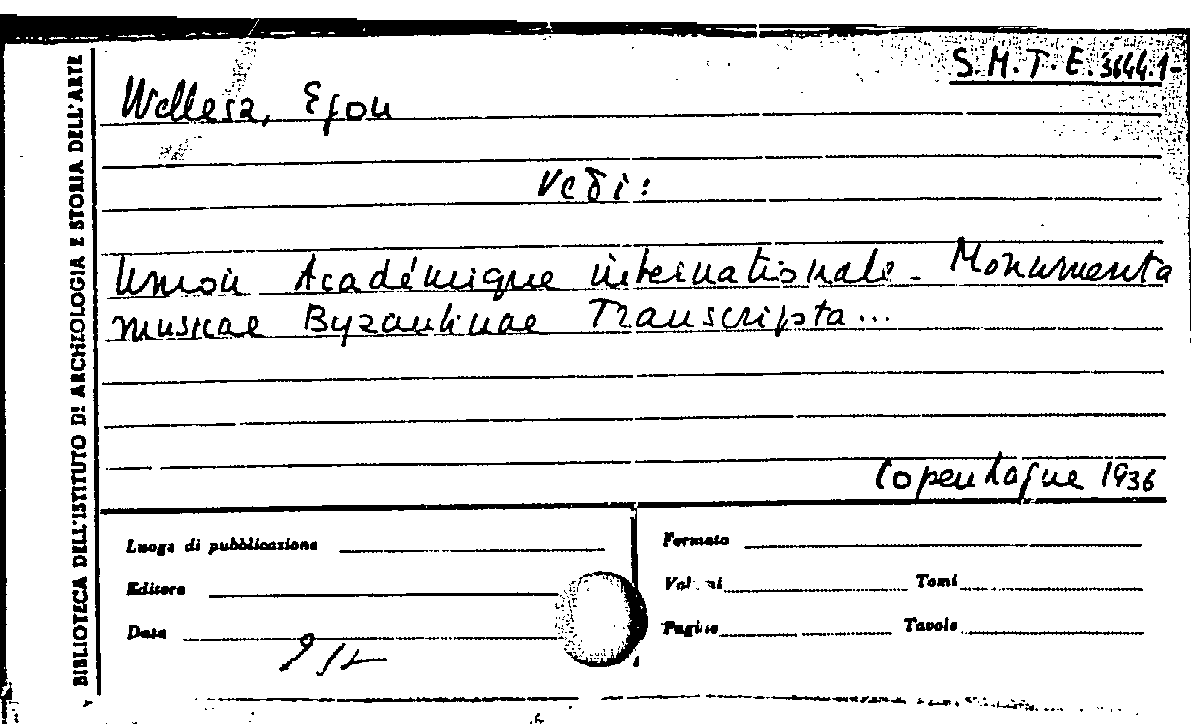 S.M.T.E. 3644.1-
Wellesz, Egon
Vedi:
Union Académique internationale - Monumenta
musicae Byzantinae Transcripta...
Copenhague 1936
Luogo di pubblicazione
Editore
Data
Formato
Volumi Tomi
Pagine Tavole
BIBLIOTECA DELL'ISTITUTO DI ARCHEOLOGIA E STORIA DELL'ARTE